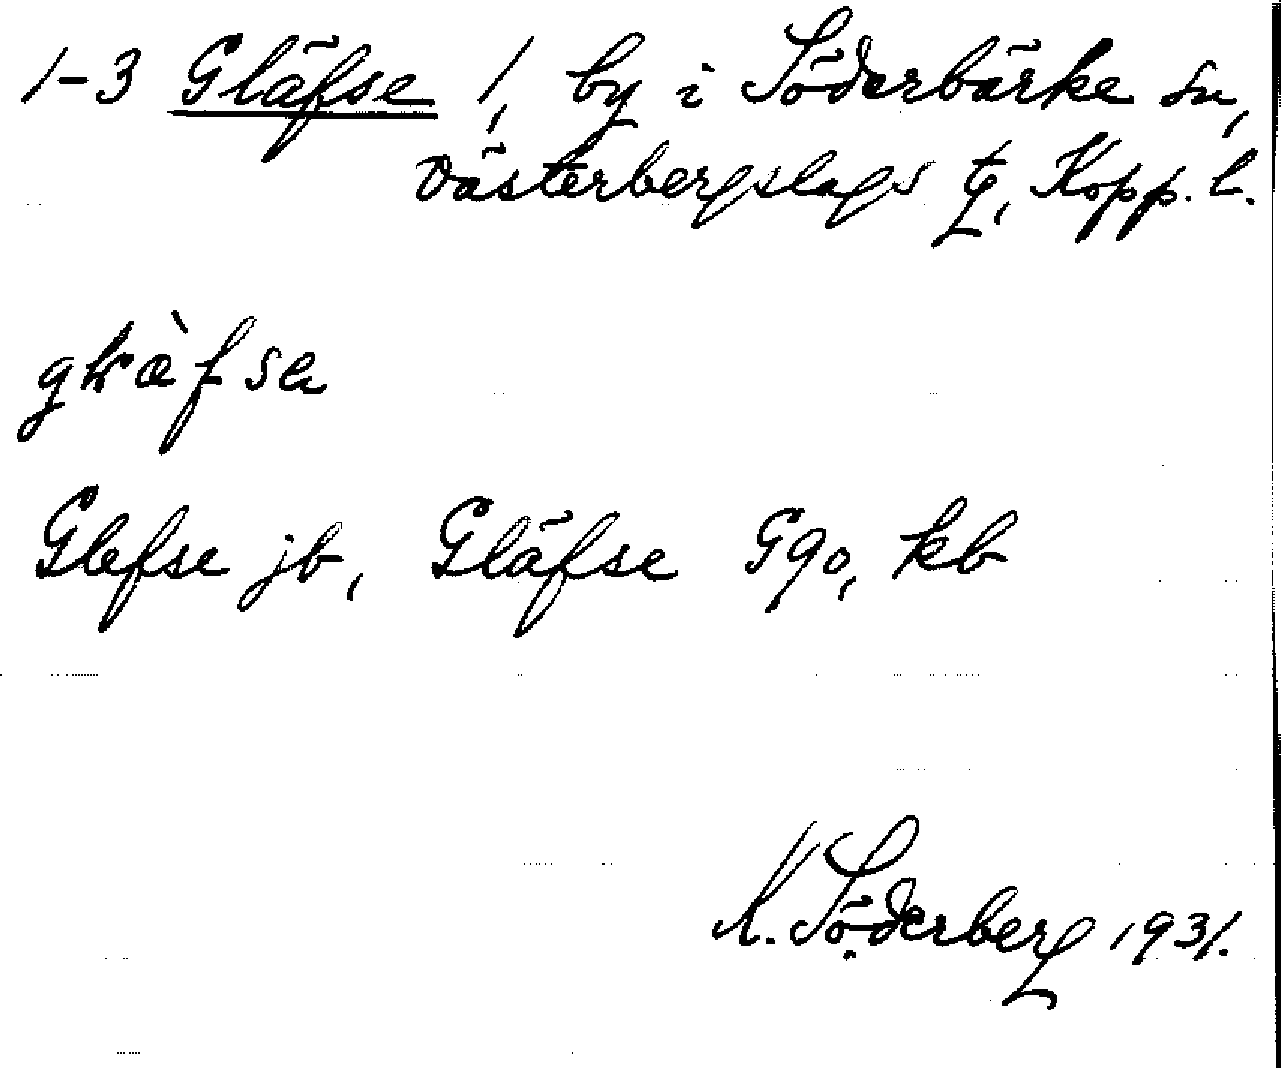 1-3 Gläfse 1, by i Söderbärke sn,
Västerbergslags tg, Kopp. l.
Glefse jb, Gläfse Ggo, kb
K. Söderberg 1931.